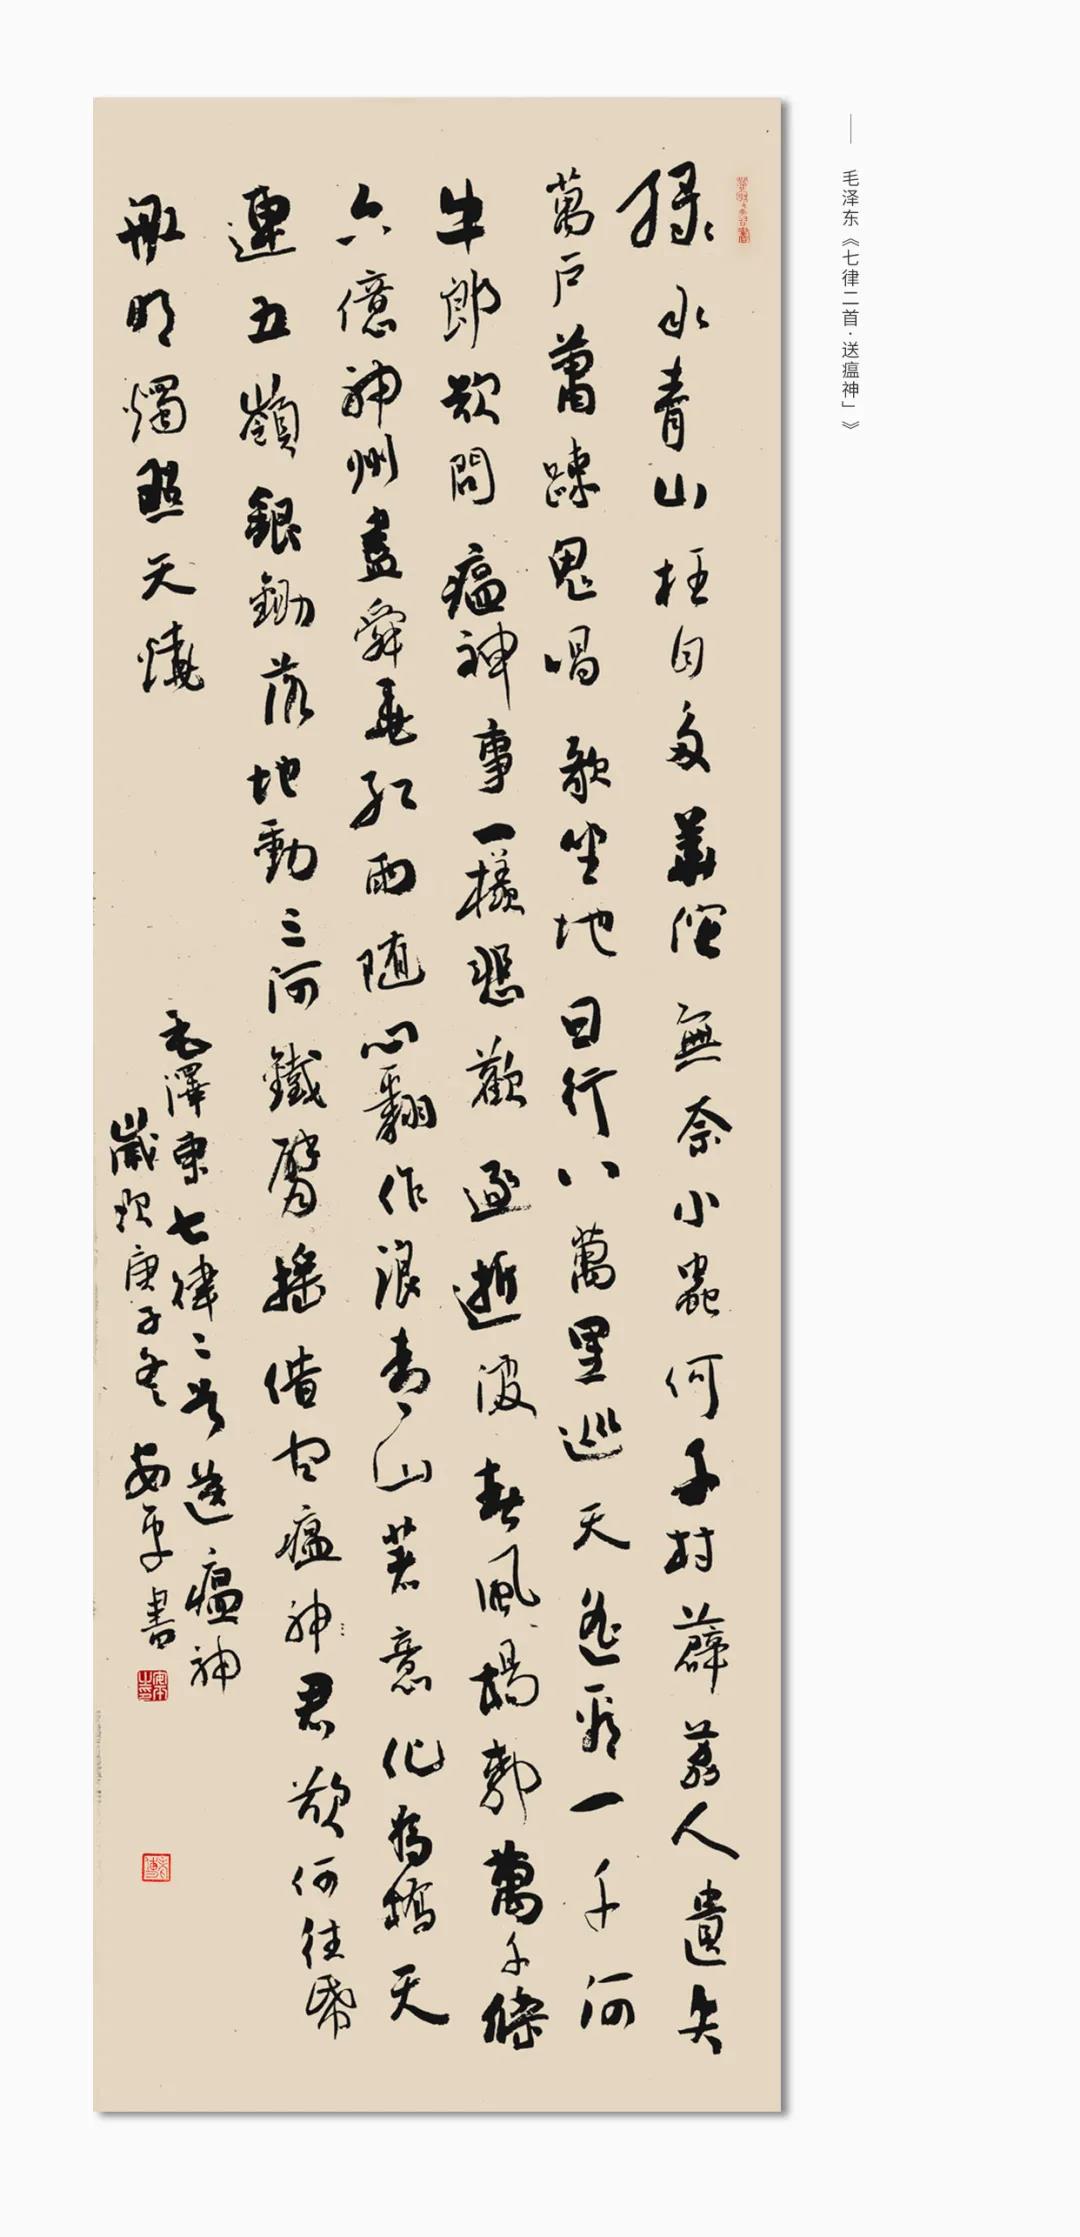 毛泽东《七律二首·送瘟神」》
緑水青山枉自多華佗無奈小蟲何千村薜荔人遺矢
萬戶蕭踈鬼唱歌坐地日行八萬里巡天遙看一千河
牛郎欲問瘟神事一樣悲歡逐逝波春風楊柳萬千條
六億神州盡舜堯紅雨随心翻作浪青山著意化為橋天
連五嶺銀鋤落地動三河鐵臂搖借问瘟神君欲何往紙
船明燭照天燒
毛澤東七律二首送瘟神
歲次庚子冬安平書